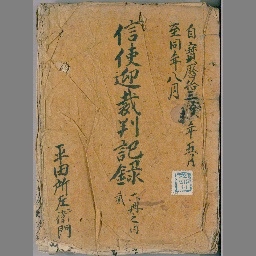 自寶暦拾三癸未年五月
至同年八月
信使迎裁判記録
六冊之内
貳
平田所左衛門